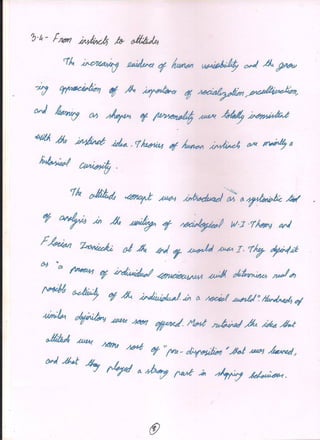 3.4- From instincts to attitudes
The increasing evidence of human variability and the grow
-ing appreciation of the importance of socialization, enculturation,
and learning as shapers of personality were totally inconsistent
with the instinct idea. Theories of human instincts are mainly a
historical curiosity.
The attitude concept was introduced as a systematic tool
of analysis in the writings of sociological W.I. Thomas and
Florian Znaniecki at the end of world war I. They defined it
as "a process of individual consciousness which determines real or
possible activity of the individual in a social world". Hundreds of
similar definitions were soon offered. Most retained the idea that
attitude were some sort of "pre-disposition" that were learned,
and that they played a strong part in shaping behaviour.
9